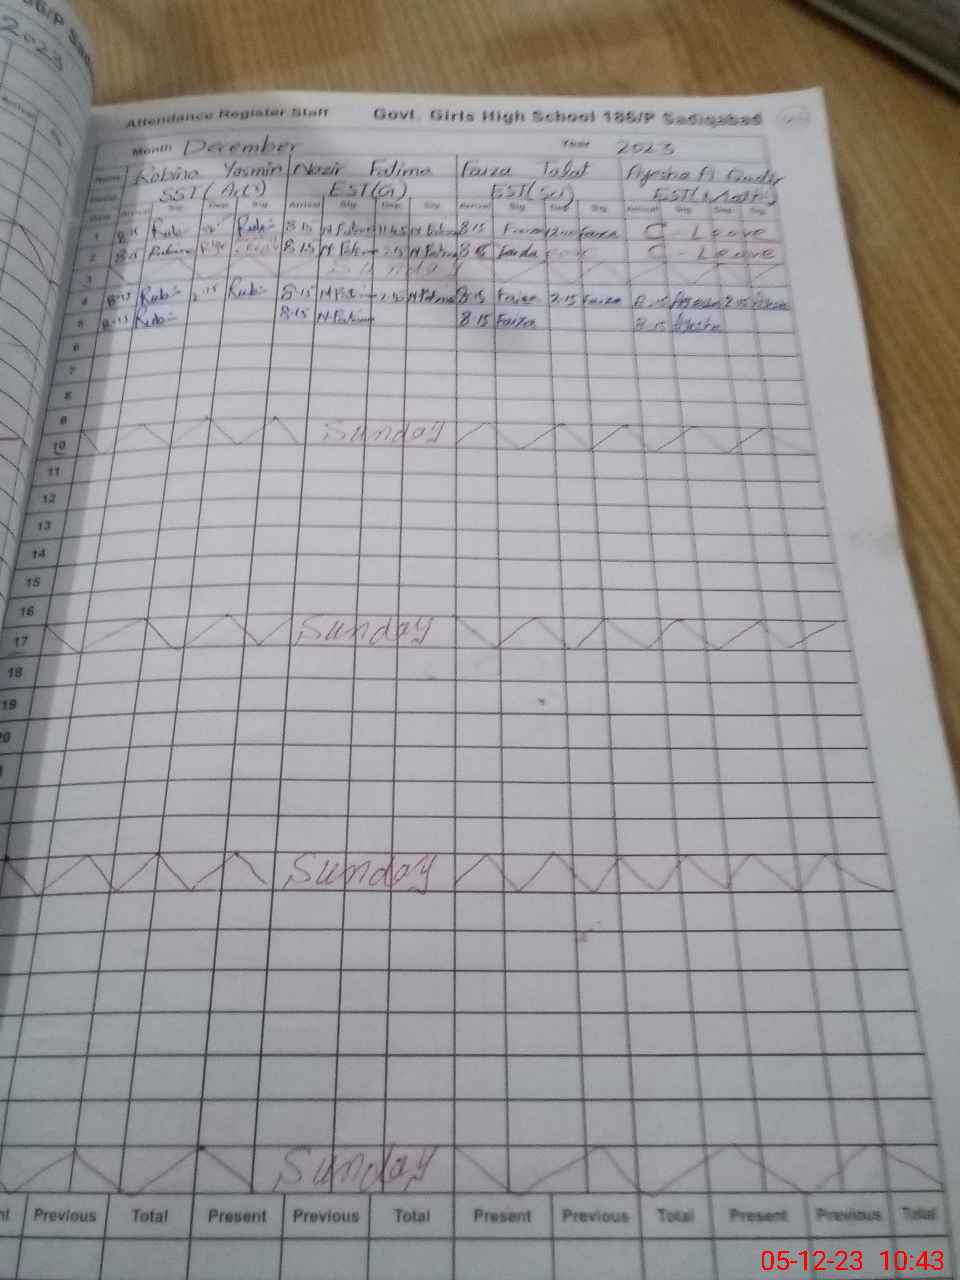 2023
Attendance Register Staff Govt. Girls High School 186/P Sadiqabad
Month December Year 2023
Name Robina Yasmin Nazir Fatima Faiza Talat Ayesha
SST( EST( EST(Sci) EST(
Arrival Sig Dep Sig Arrival Sig Dep Sig Arrival Sig Dep Sig Arrival Sig Dep Sig
1 8.15 Rubi Rubi 8.15 N Fatima 11.45 N Fatima 8.15 Faiza Faiza C Leave
2 8.15 8.15 N Fatima N Fatima 8.15 C - Leave
3 Sunday
4 8.15 Rubi 2.15 Rubi 8.15 N Fatima 2.15 N Fatima 8.15 Faiza 2.15 Faiza 8.15 Ayesha 2.15 Ayesha
5 8.15 Rubi 8.15 N Fatima 8.15 Faiza 8.15 Ayesha
6
7
8
9
10 Sunday
11
12
13
14
15
16
17 Sunday
18
19
20
Sunday
Sunday
Previous Total Present Previous Total Present Previous Total Present Previous Total
05-12-23 10:43